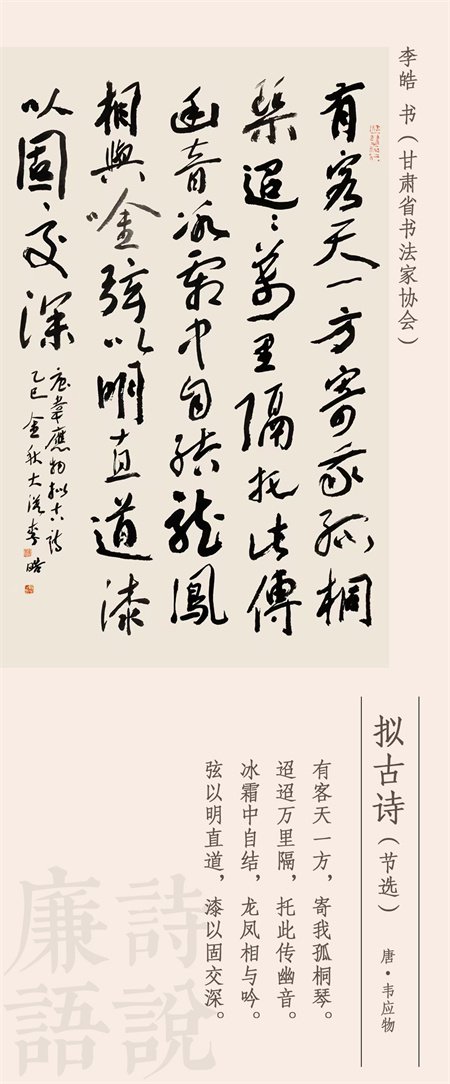 李皓 书（甘肃省书法家协会）
有客天一方寄我孤桐
琴迢〻万里隔托此傳
幽音冰霜中自结龍鳳
相與唫弦以明直道漆
以固〻交深
唐韋應物拟古诗
乙巳金秋大漠李皓
拟古诗（节选）
唐·韦应物
有客天一方，寄我孤桐琴。
迢迢万里隔，托此传幽音。
冰霜中自结，龙凤相与吟。
弦以明直道，漆以固交深。
詩說
廉語